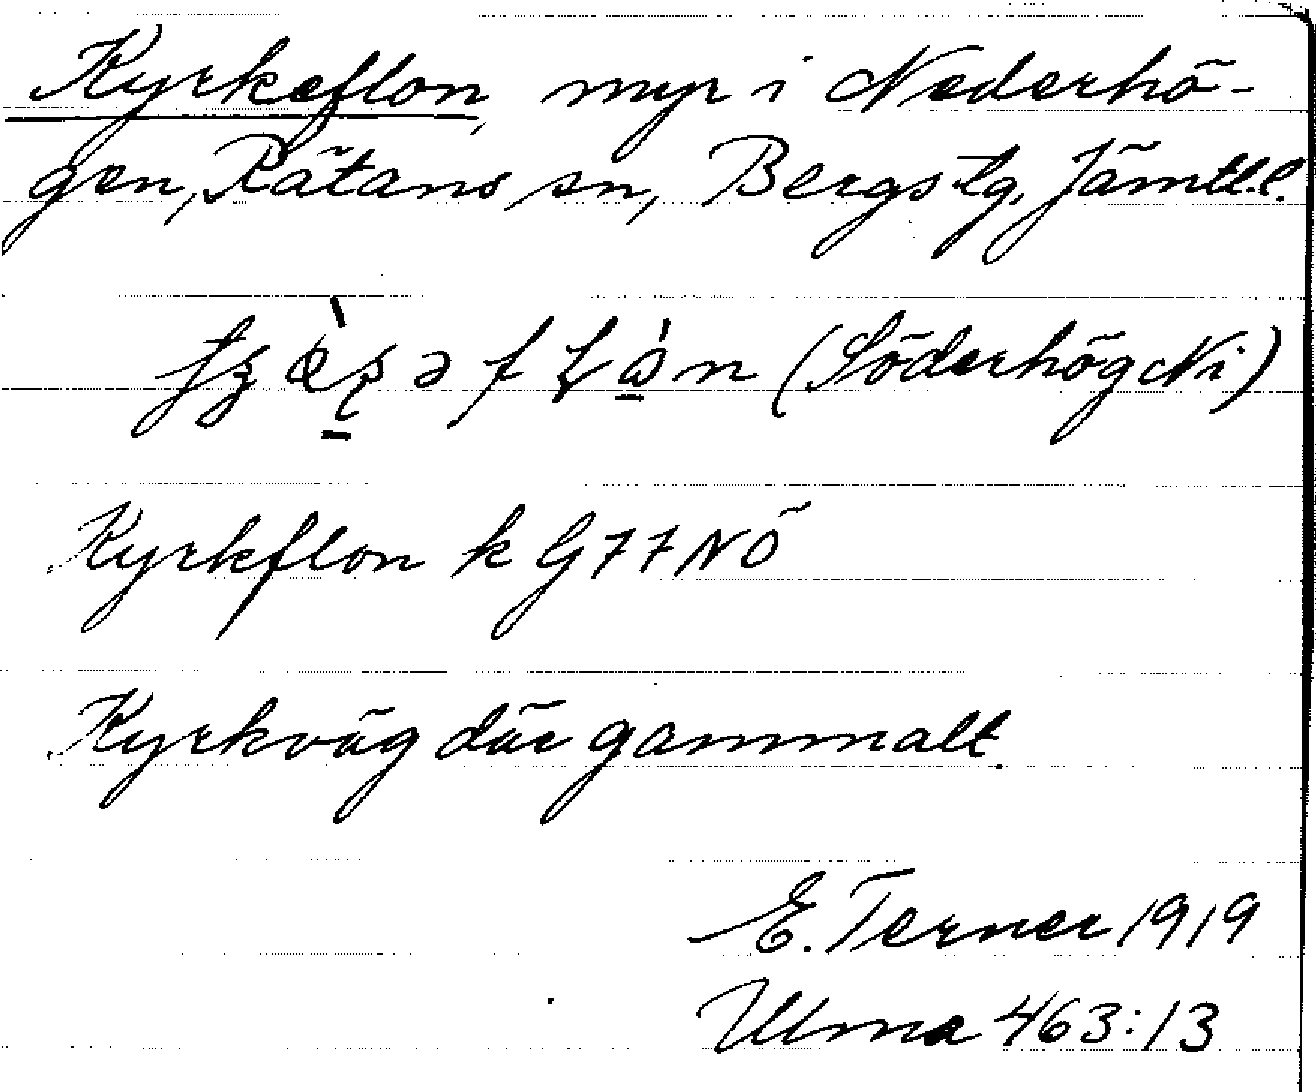 Kyrkeflon, myr i Nederhö-
gen, Rätans sn, Bergs tg, Jämtl.l.
(Söderhög Ni)
Kyrkflon k G77NÖ
Kyrkväg där gammalt.
E. Terner 1919
Ulma 463:13